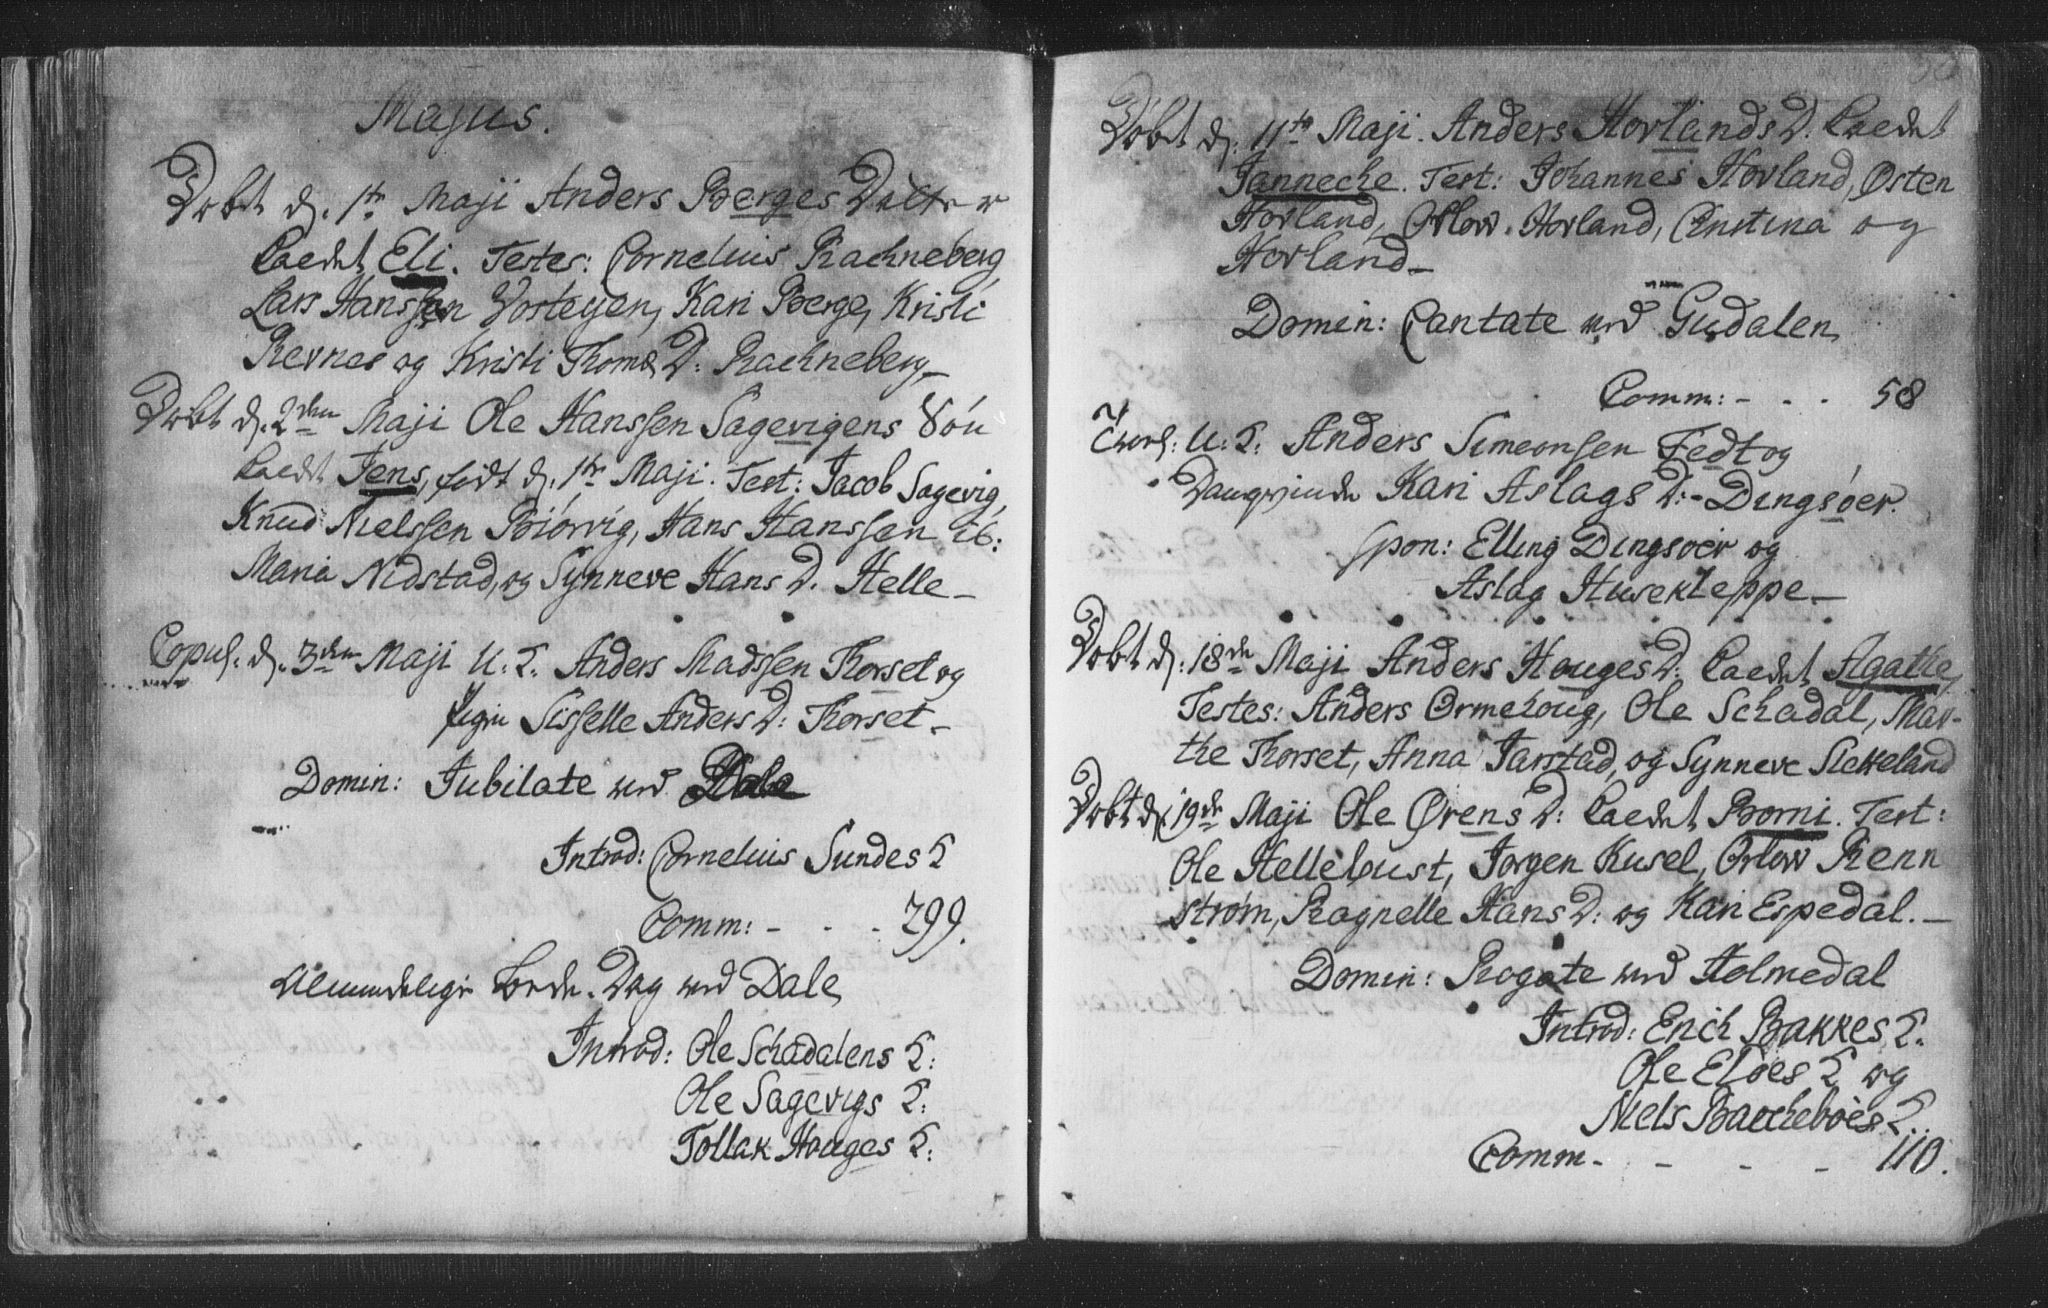 Majus.
Døbt d. 1te Maji Anders Berges Datter
kaedet Eli. Testes: Cornelius Rachneberg
Lars Hanssen Yosteyen, Kari Berge, Kristi
Revnes og Kristi Thomæ D: Rachneberg.
Døbt d. 2den Maji Ole Hanssen Sagevigens Søn
kaedt Jens, født d. 1te Maji. Test: Jacob Sagevig,
Knud Nielssen Biørvig, Hans Hanssen ib:
Maria Nidstad, og Synneve Hans D. Helle_
Copul. d. 3den Maji U. K. Anders Madssen Thorset og
Pigen Sisselle Anders D: Thorset_
Domin: Jubilate ved Dale
Introd: Cornelius Sundes K
Comm: - - - 299.
Alemindelige Bede-Dag ved Dale
Introd: Ole Schadalens K:
Ole Sagevigs K:
Tollak Houges K:
50
Døbt d: 11te Maji. Anders Hovlands D. kaedet
Jannecke. Test: Johannes Hovland, Østen
Hovland, Orlow. Hovland, Christina og
Hovland_
Domin: Cantate ved Gusdalen
Comm: - - - 58
U: K. Anders Simeonsen Fedt og
Danqvinde Kari Aslags D:- Dingsøer.
spon: Elling Dingsøer og
Aslag Husekleppe_
Døbt d: 18de Maji Anders Houges D: kaedet Agathe,
Testes: Anders Ormehoug, Ole Schadal, Mar-
the Thorset, Anna Jarstad, og Synneve Sletteland
Døbt d: 19de Maji Ole Ørens D: kaedet Borni. Test:
Ole Hellebust, Jørgen Kusel, Orlow Renn
strøm, Ragnelle Hans D: og Kari Espedal._
Domin: Rogate ved Holmedal
Introd: Erich Bakkes K.
Ole Eløes K og
Niels Baccheboes K.
Comm - - - - 110.